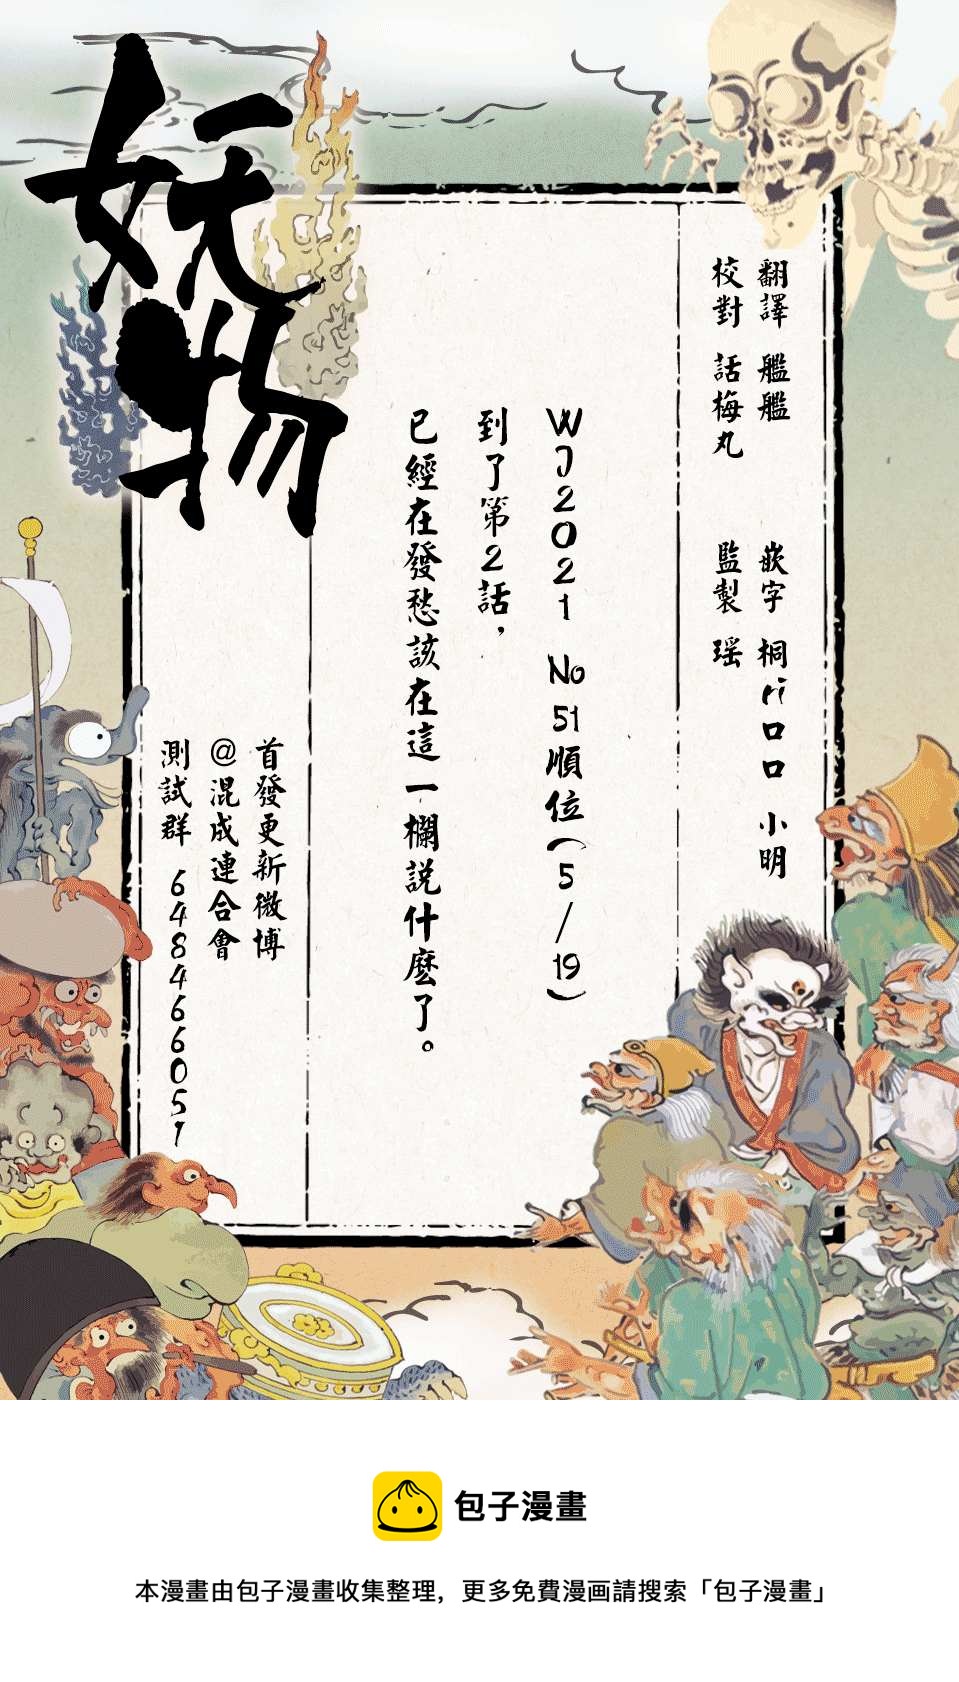 妖物
翻譯 艦艦 嵌字 桐ri口口 小明
校對 話梅丸 監製 瑶
WJ2021 No51順位(5/19)
到了第2話，
已經在發愁該在這一欄説什麼了。
首發更新微博
@混成連合會
測試群 648466051
包子漫畫
本漫畫由包子漫畫收集整理，更多免費漫画請搜索「包子漫畫」